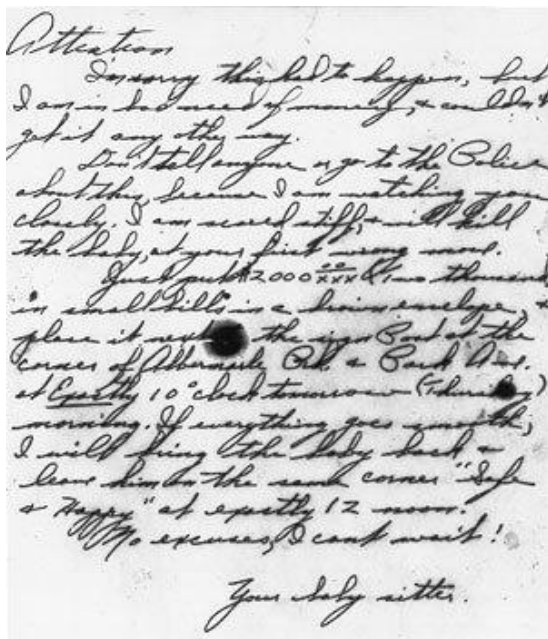 Attention
I'm sorry this had to happen, but
I am in bad need of money, & couldn't
get it any other way.
Don't tell anyone or go to the Police
about this, because I am watching you
closely. I am scared stiff, & will kill
the baby, at your first wrong move.
Just put $2000 00/xxx (two thousand
in small bills in a brown envelope, &
place it next the sign Post at the
corner of Albemarle Rd. & Park Ave.
at Exactly 10 o'clock tomorrow (Thursday)
morning. If everything goes smooth,
I will bring the baby back &
leave him on the same corner "Safe
& Happy" at exactly 12 noon.
No excuses, I cant wait!
Your baby sitter.